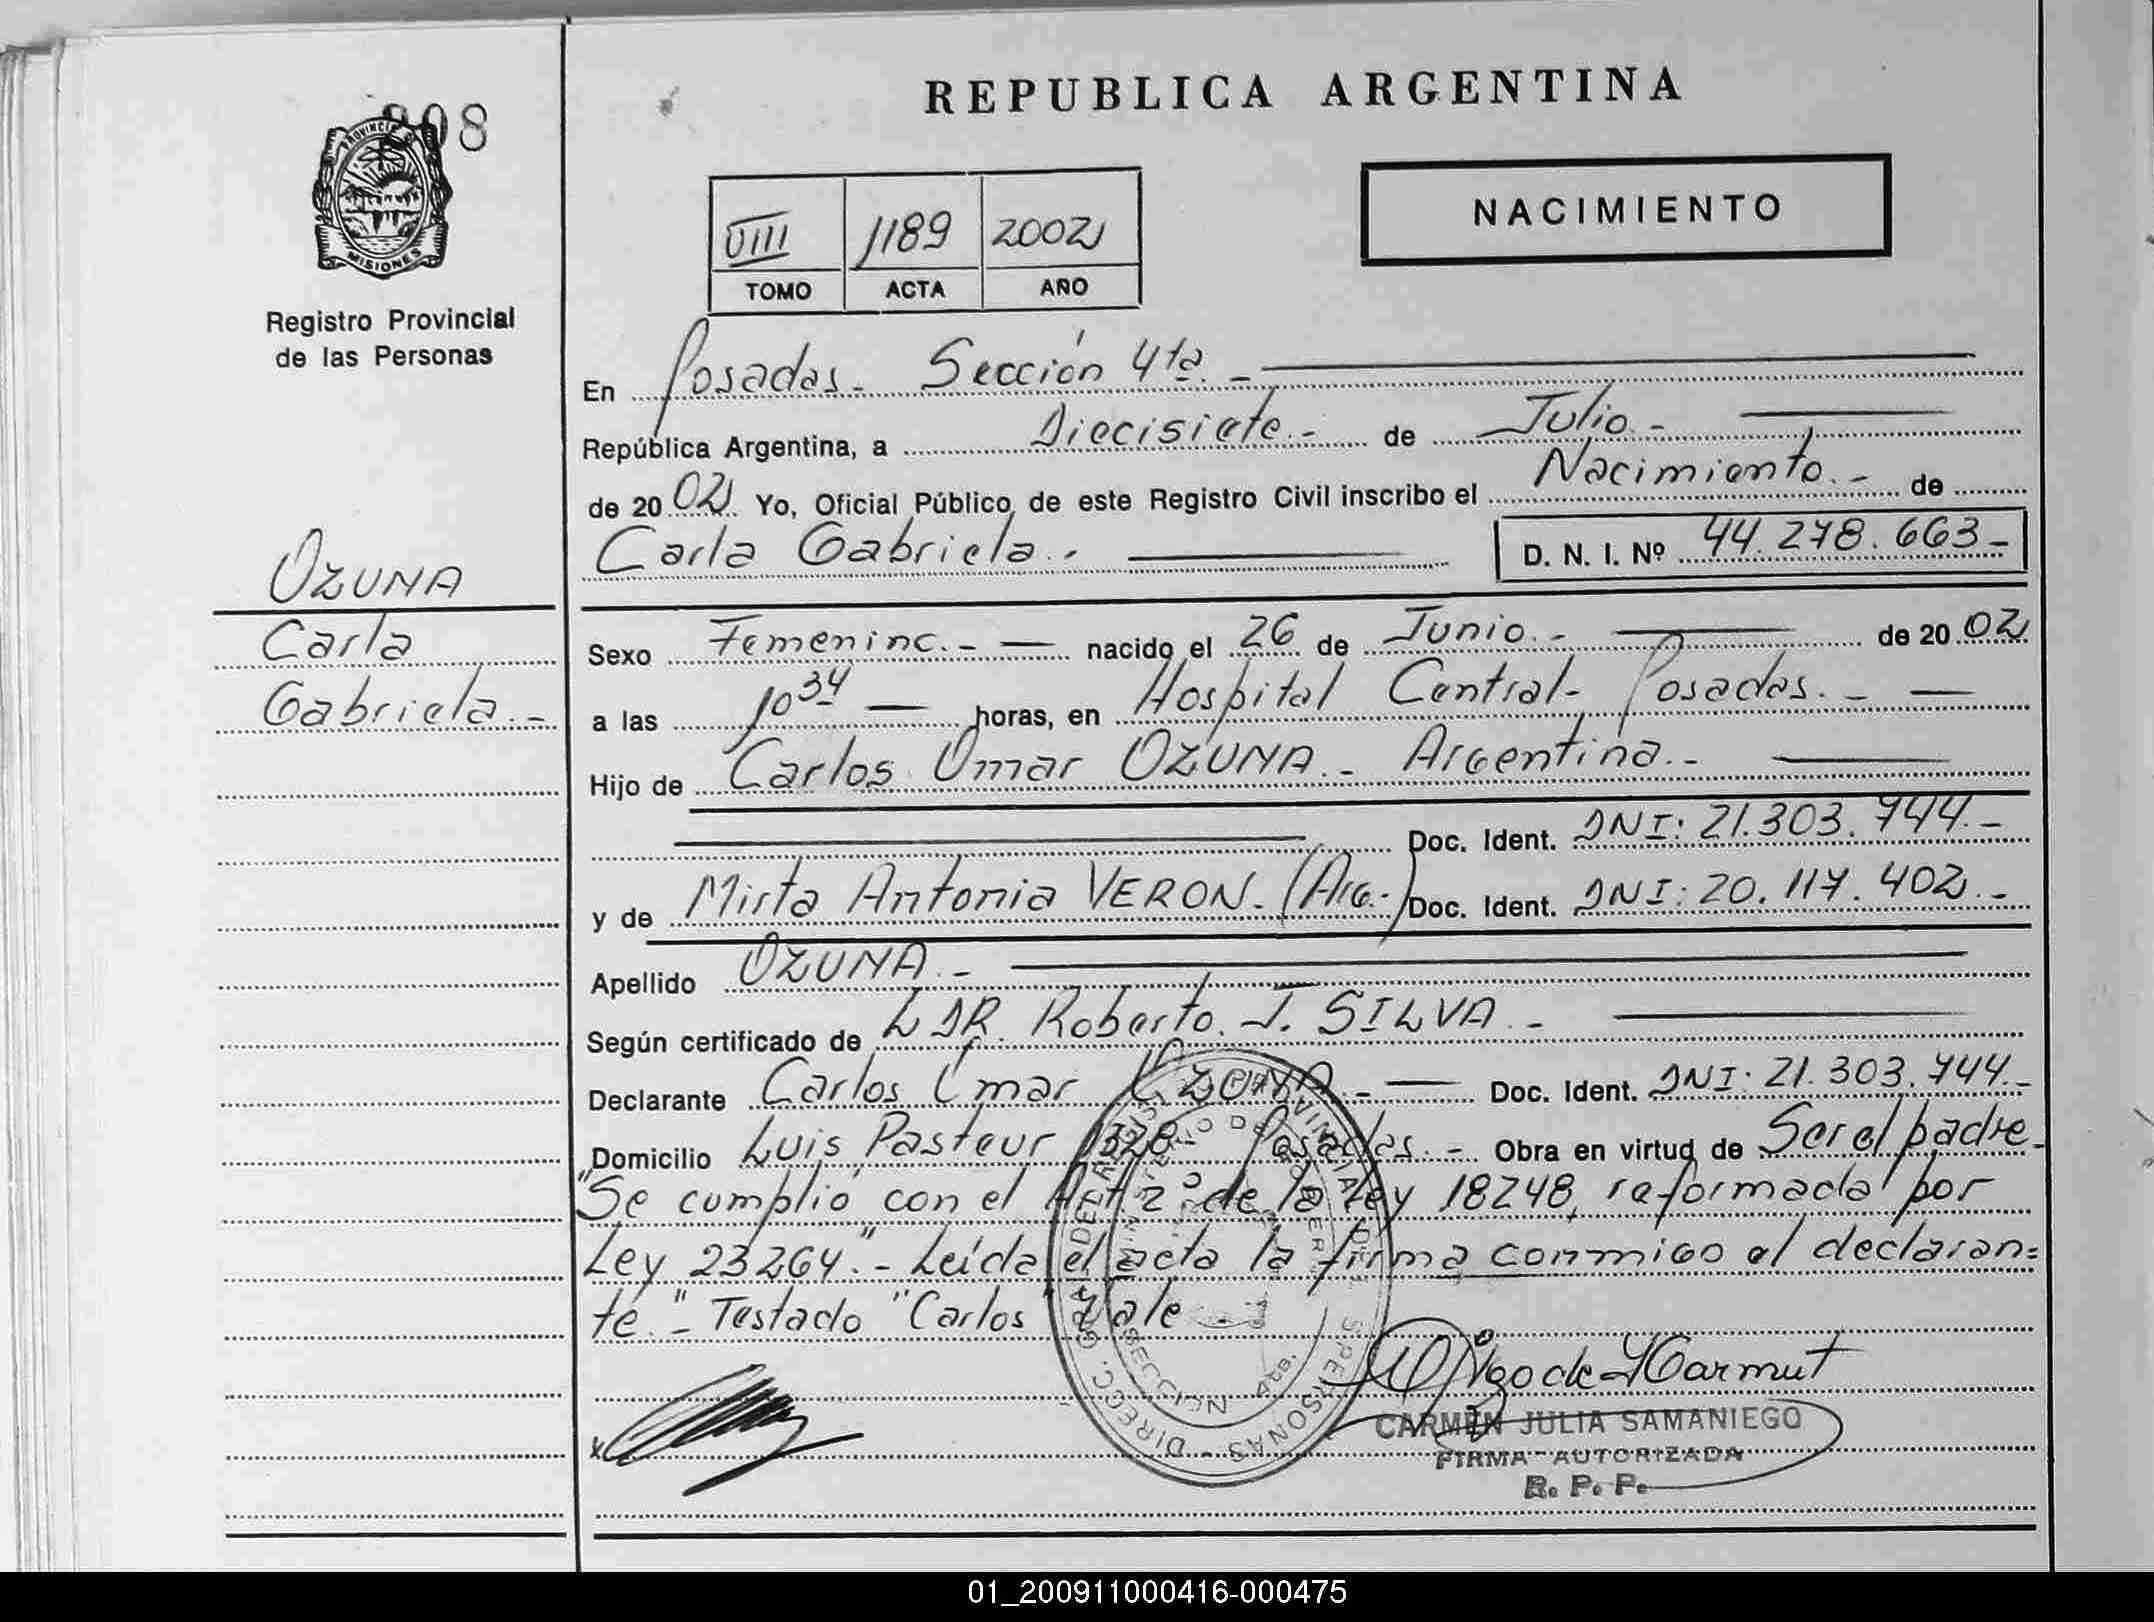 808
PROVINCIA
MISIONES
Registro Provincial
de las Personas
OZUNA
Carla
Gabriela.-
REPUBLICA ARGENTINA
VIII 1189 2002
TOMO ACTA AÑO
NACIMIENTO
En Posadas.- Sección 4ta.-
República Argentina, a Diecisiete.- de Julio.-
de 2002 Yo, Oficial Público de este Registro Civil inscribo el Nacimiento.- de
Carla Gabriela.- D. N. I. Nº 44.278.663-
Sexo Femenino.- nacido el 26 de Junio.- de 2002
a las 10 34 horas, en Hospital Central- Posadas.-
Hijo de Carlos Omar OZUNA.- Argentina.-
Doc. Ident. DNI: 21.303.744.-
y de Mirta Antonia VERON. (Arg.-) Doc. Ident. DNI: 20.117.402.-
Apellido OZUNA.-
Según certificado de LDR. Roberto. J. SILVA.-
Declarante Carlos Omar OZUNA.- Doc. Ident. DNI: 21.303.744.-
Domicilio Luis Pasteur 1328- Posadas.- Obra en virtud de Ser el padre.
"Se cumplió con el Art 2° de la Ley 18248, reformada por
Ley 23264".- Leída el acta la firma conmigo el declaran=
te."- Testado "Carlos Vale
CARMEN JULIA SAMANIEGO
FIRMA AUTORIZADA
R. P. P.
01_200911000416-000475